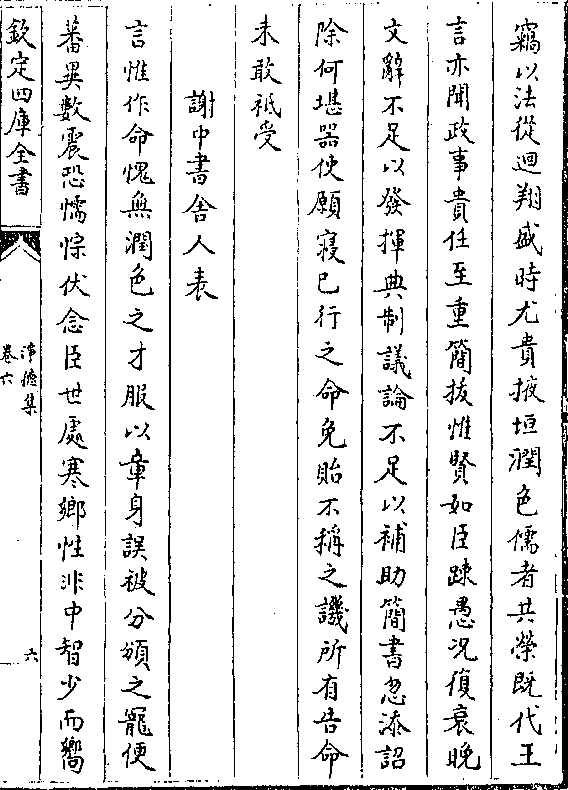 竊以法從迴翔盛時尤貴掖垣潤色儒者共榮既代王
言亦聞政事貴任至重簡拔惟賢如臣踈愚况復衰晚
文辭不足以發揮典制議論不足以補助簡書忽添詔
除何堪器使願寢已行之命免貽不稱之譏所有告命
未敢祗受
謝中書舍人表
言惟作命愧無潤色之才服以章身誤被分頒之寵便
蕃異數震恐懦悰伏念臣世處寒鄉性非中智少而嚮
欽定四庫全書
淨德集
卷六
六